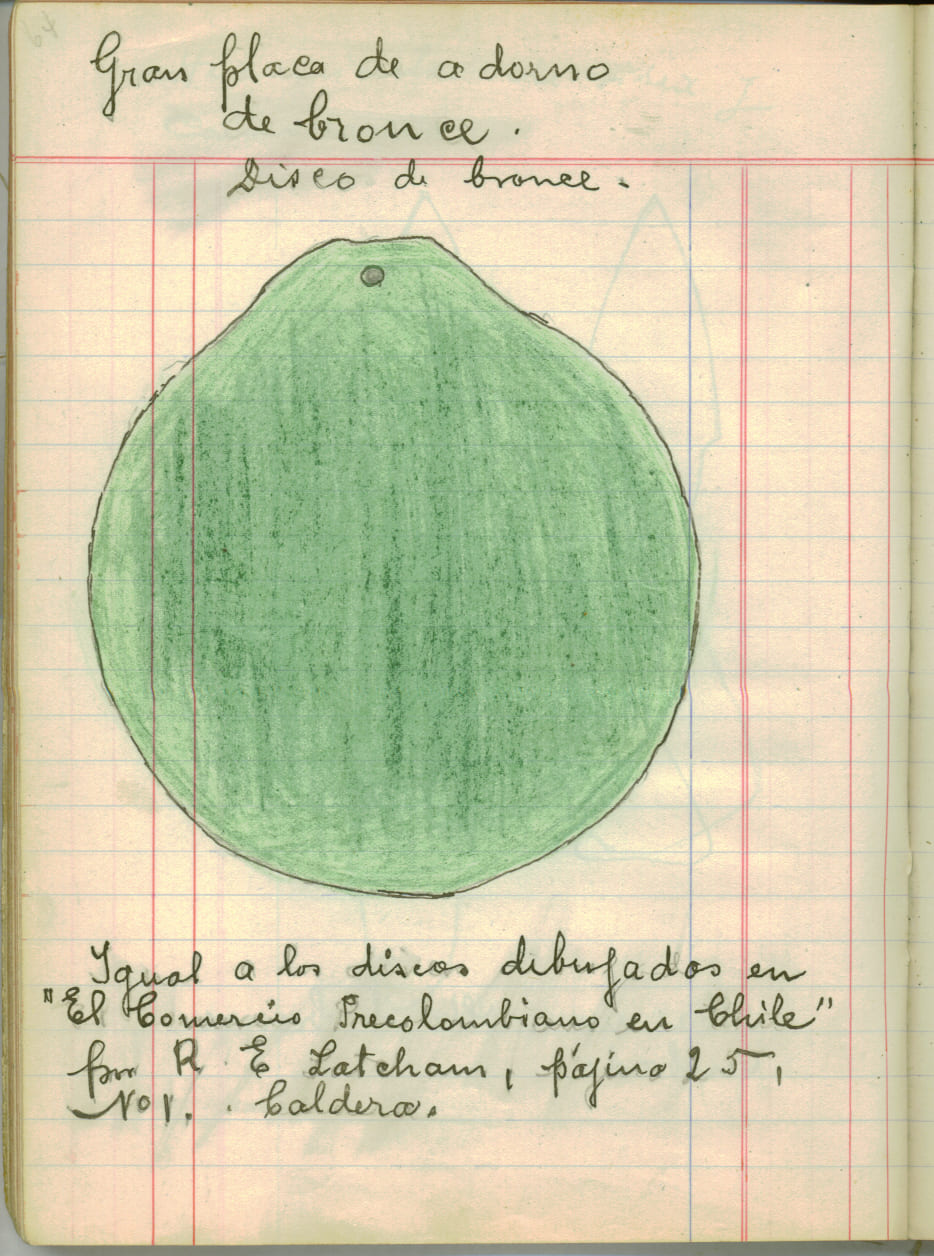 64
Gran placa de adorno
de bronce.
Disco de bronce.
Igual a los discos dibujados en
"El Comercio Precolombiano en Chile"
por R. E. Latcham, página 25,
No 1. . Caldera.